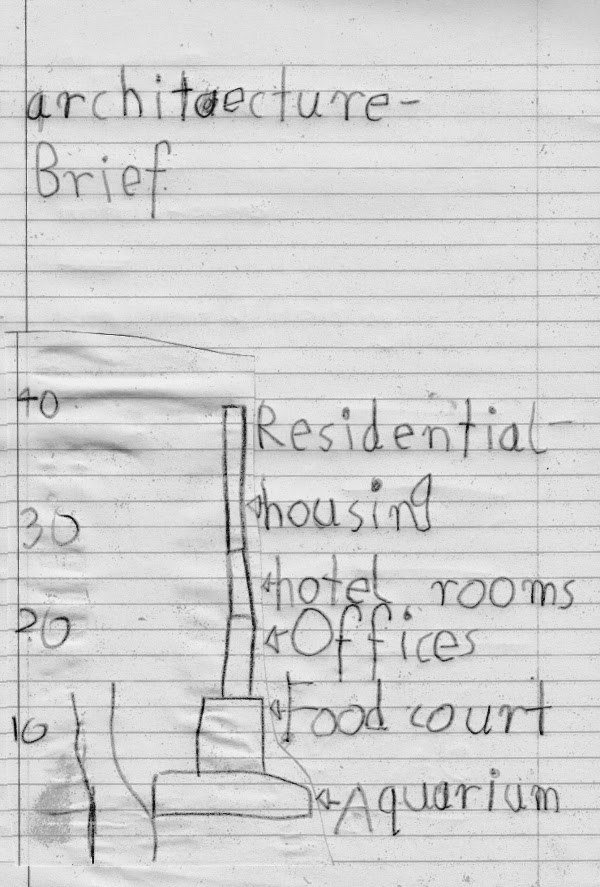 architaecture-
Brief
40
Residential-
housing
30
hotel rooms
20
Offices
Food court
10
Aquarium